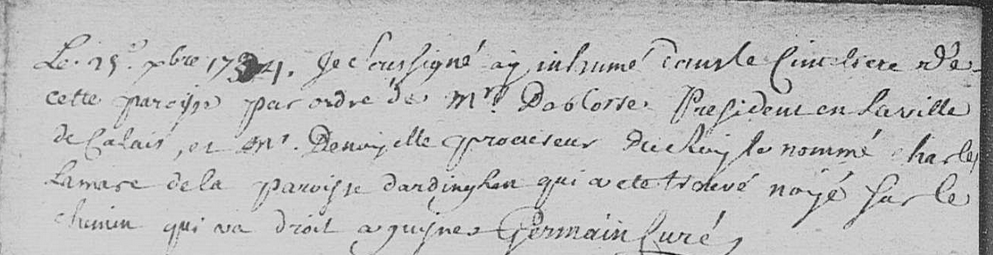 Le 25e. xbre 1734. Je soussigné ay inhumé dans le Cimetiere de
cette paroisse par ordre de Mr. Preſident en la ville
de Calais, et Mr. procureur du Roy le nommé charles
Lamare de la paroiſſe dardinghen qui a ete trouvé noÿé sur le
chemin qui va droit a guisnes Germain Curé